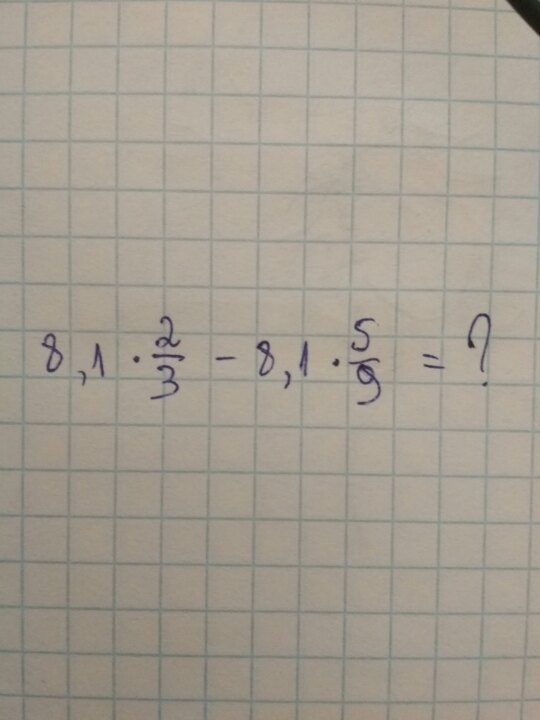 8,1 · 2/3 − 8,1 · 5/9 = ?